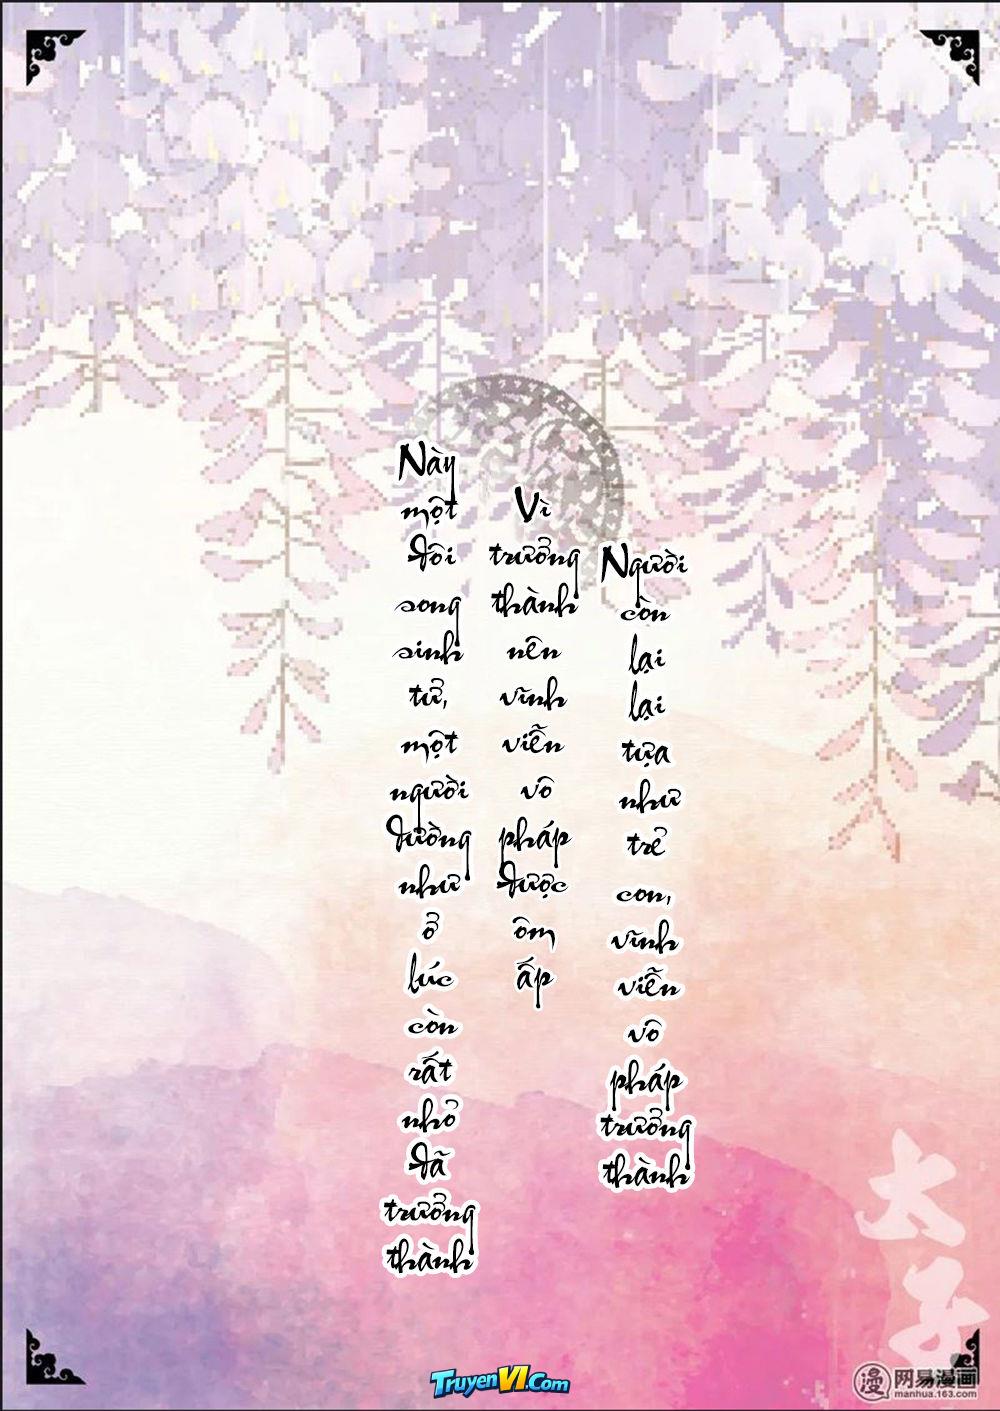 Này
một
đôi
song
sinh
tử,
một
người
đường
như
ở
lúc
còn
rất
nhỏ
đã
trưởng
thành
Vì
trưởng
thành
nên
vĩnh
viễn
vô
pháp
được
ôm
ấp
Người
còn
lại
lại
tựa
như
trẻ
con,
vĩnh
viễn
vô
pháp
trưởng
thành
太
子
TruyenVI.Com
网易漫画
manhua.163.com